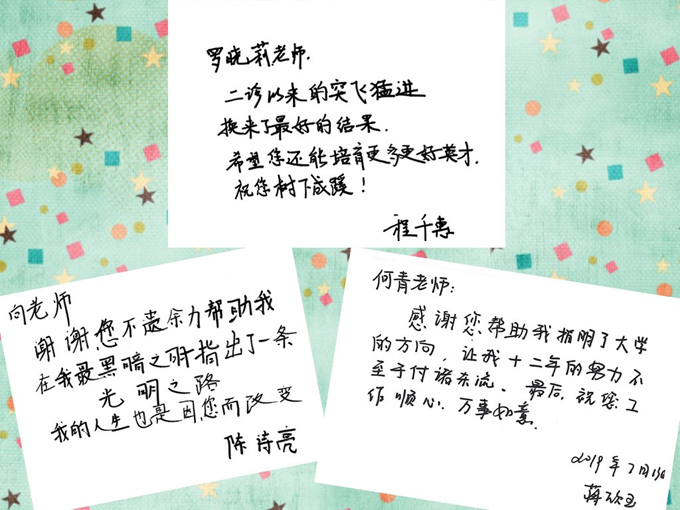 罗晓莉老师.
二诊以来的突飞猛进
换来了最好的结果.
希望您还能培育更多更好英才.
祝您树下成蹊!
程千惠
向老师
谢谢您不遗余力帮助我
在我最黑暗之时指出了一条
光明之路
我的人生也是因您而改变
陈诗亮
何青老师:
感谢您帮助我指明了大学
的方向,让我十二年的努力不
至于付诸东流。最后,祝您工
作顺心,万事如意.
2019年7月13日
蒋欣玉